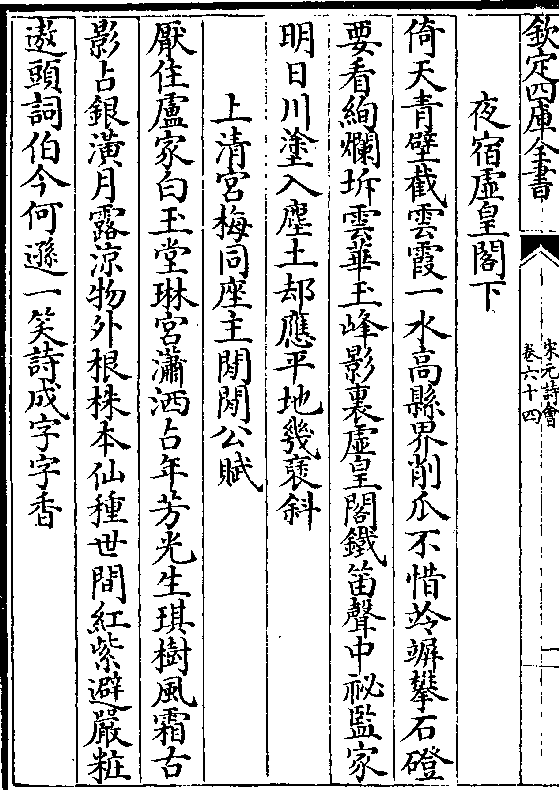 欽定四庫全書
宋元詩會
卷六十四
一
夜宿虛皇閣下
倚天青壁截雲霞一水高縣界削瓜不惜竛竮攀石磴
要看絢爛坼雲華玉峰影裏虛皇閣鐵笛聲中祕監家
明日川塗入塵土却應平地幾襃斜
上清宮梅同座主閒閒公賦
厭住盧家白玉堂琳宮瀟洒占年芳光生琪樹風霜古
影占銀潢月露涼物外根株本仙種世間紅紫避嚴粧
遨頭詞伯今何遜一笑詩成字字香